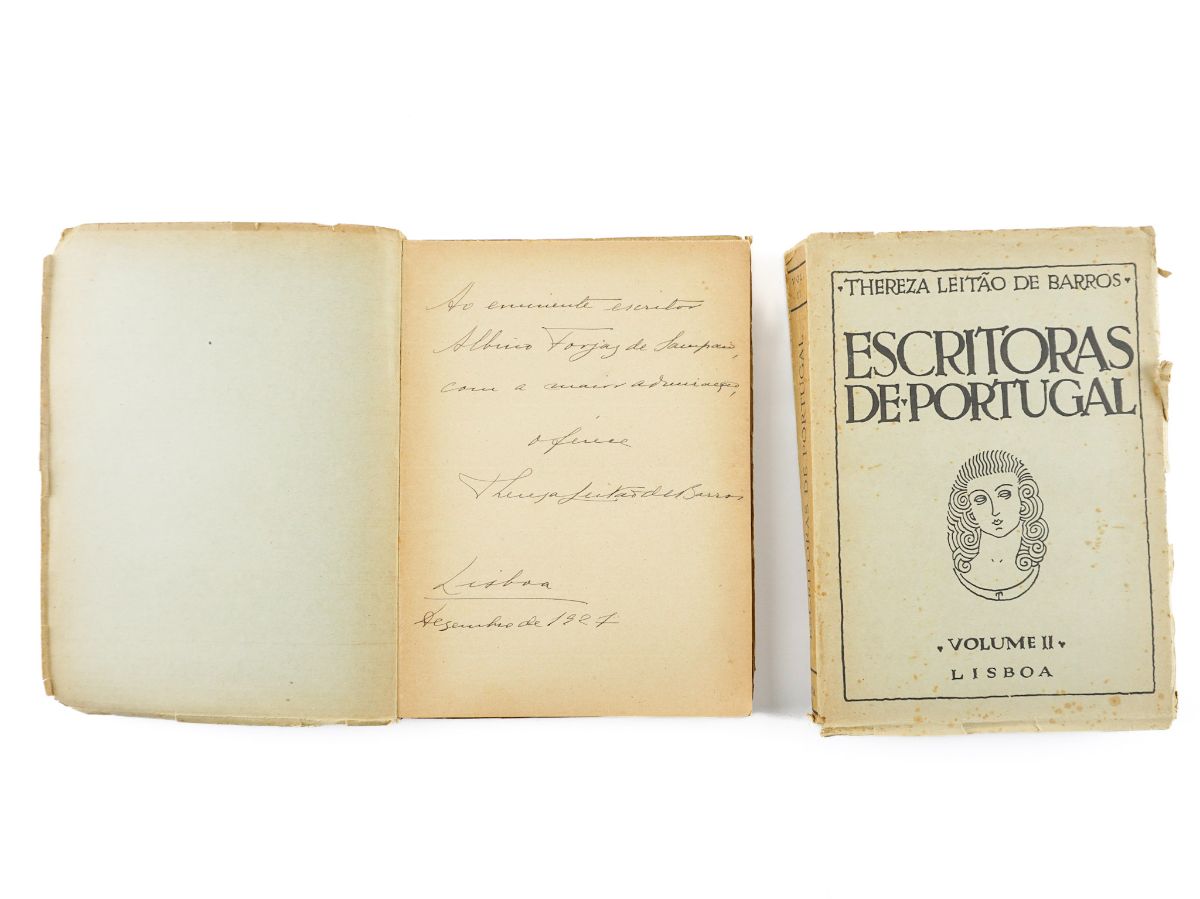 Ao eminente escritor
Albino Forjaz de Sampaio,
com a maior admiração,
oferece
Thereza Leitão de Barros
Lisboa
Dezembro de 1927
VOL
ESCRITORAS DE PORTUGAL
THEREZA LEITÃO DE BARROS
ESCRITORAS
DE PORTUGAL
T
VOLUME II
LISBOA